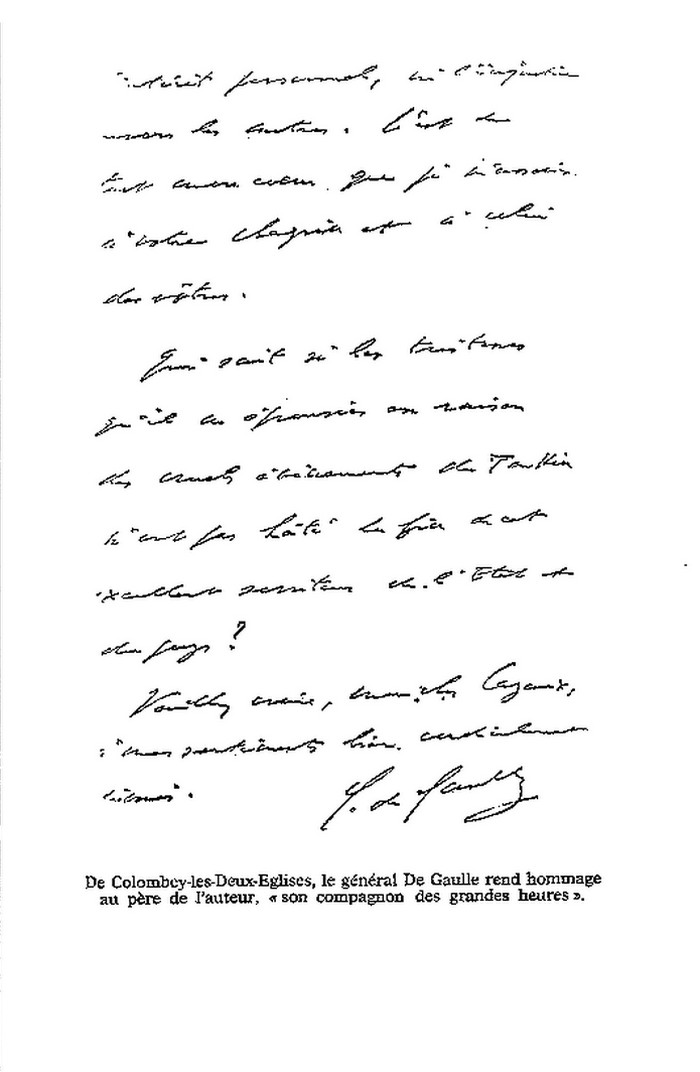 intérêt personnel, ni l'injustice
envers les autres. C'est de
tout mon cœur que je m'associe
à votre chagrin et à celui
des vôtres.
Qui sait si les tristesses
qu'il a éprouvées en raison
des cruels évènements de
n'ont pas hâté la fin de cet
excellent serviteur de l'Etat et
du pays ?
Veuillez croire, mon cher Cazaux,
à mes sentiments bien cordialement
dévoués.
G. de Gaulle
De Colombey-les-Deux-Eglises, le général De Gaulle rend hommage
au père de l'auteur, « son compagnon des grandes heures ».